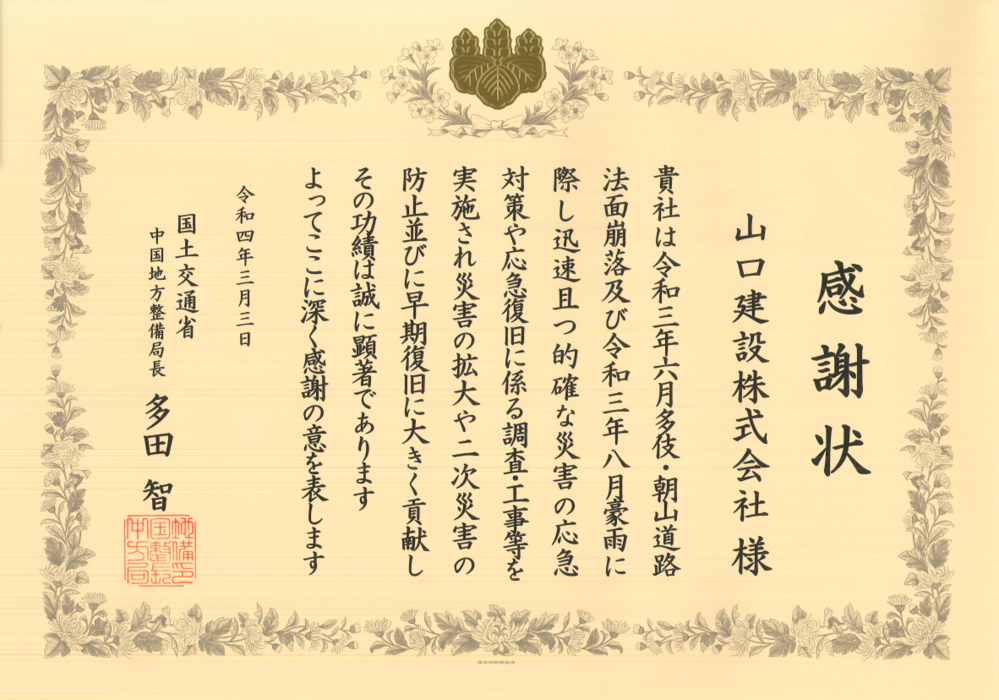 感謝状
山口建設株式会社 様
貴社は令和三年六月多伎・朝山道路
法面崩落及び令和三年八月豪雨に
際し迅速且つ的確な災害の応急
対策や応急復旧に係る調査・工事等を
実施され災害の拡大や二次災害の
防止並びに早期復旧に大きく貢献し
その功績は誠に顕著であります
よってここに深く感謝の意を表します
令和四年三月三日
国土交通省
中国地方整備局長
多田 智